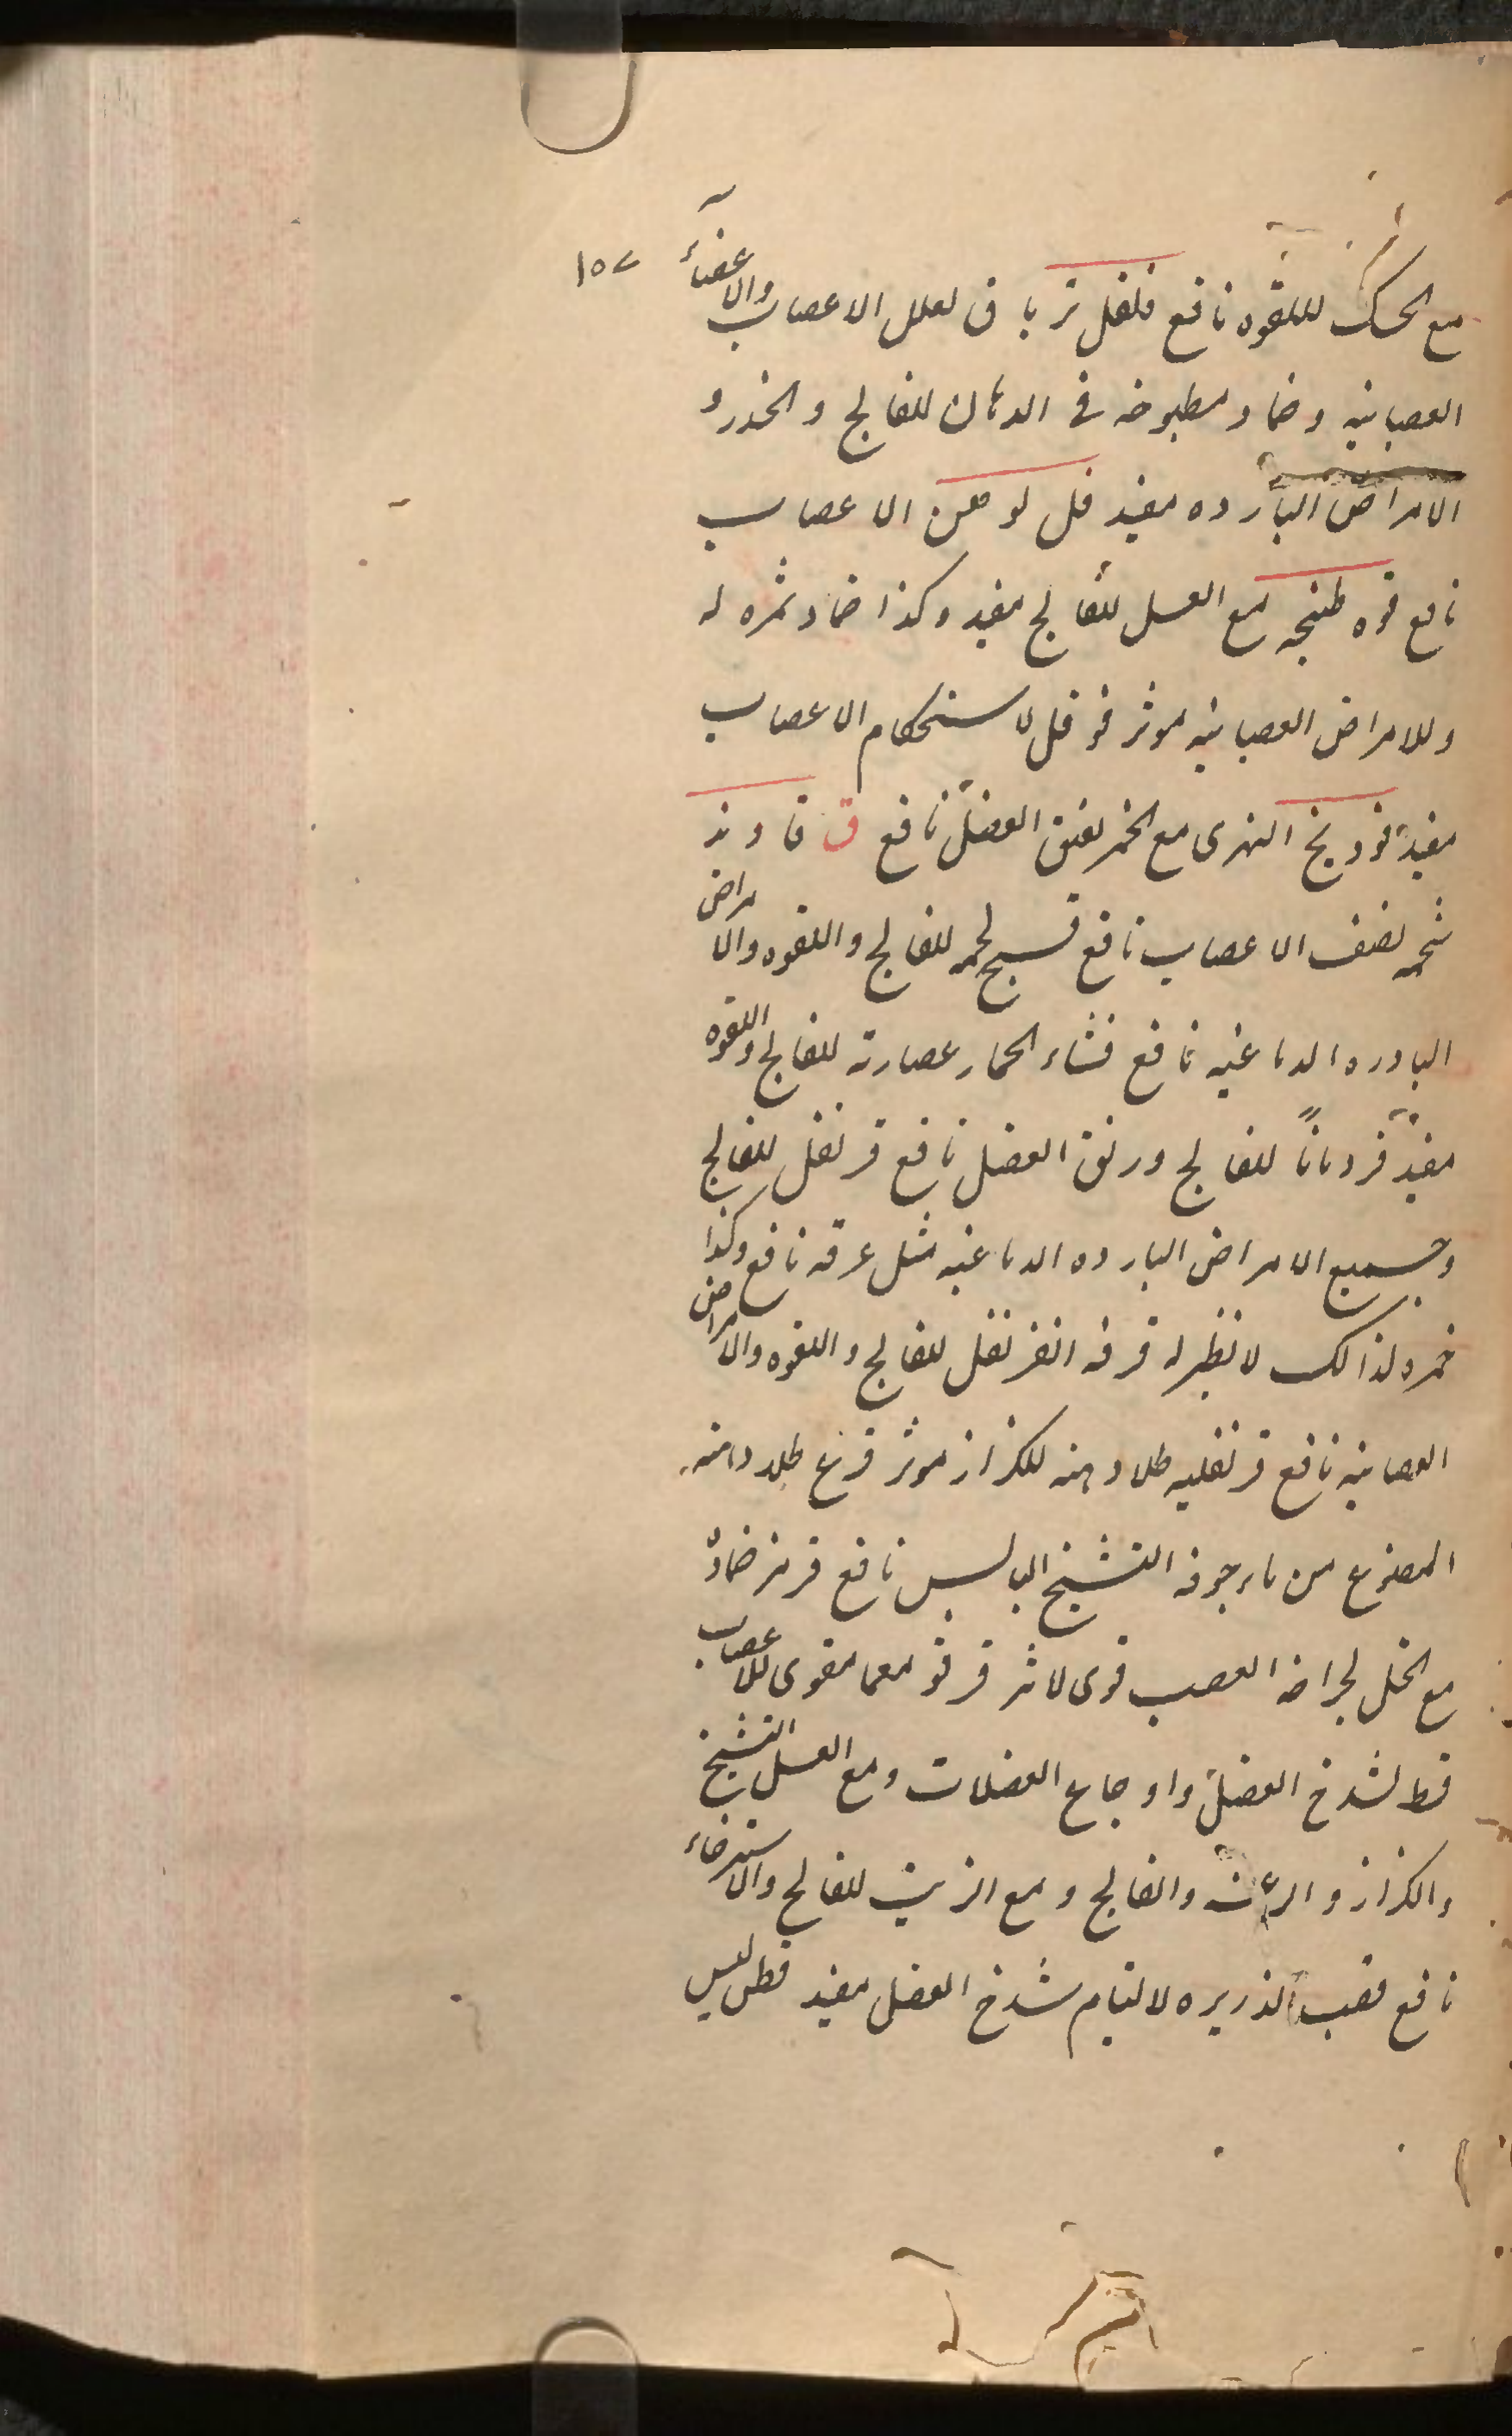 ١٥٧
مع المسک لللقوه نافع فلفل تریاق لعلل الاعصاب والاعضاء
العصبانیه وضماد مطبوخه فی الدهان للفالج والخدر و
الامراض البارده مفید فل لوهن الاعصاب
نافع فوه طبیخه مع العسل للفالج مفید وکذا ضماد ثمره له
وللامراض العصبانیه موثر فوفل لاستحکام الاعصاب
مفید فودنج النهری مع الخمر لفتق العضل نافع ق قاوند
شحمه لضعف الاعصاب نافع قبج لحمه للفالج واللقوه والامراض
البادره الدماغیه نافع قثاء الحمار عصارته للفالج واللقوه
مفید قردمانا للفالج ورتق العضل نافع قرنفل للفالج
وجمیع الامراض البارده الدماغیه مثل عرقه نافع وکذا
خمره لذالک لا نظیر له قرفه القرنفل للفالج واللقوه والامراض
العصبانیه نافع قرنفلیه طلاء دهنه للکزاز موثر قرع طلاء دهنه
المصنوع من ماء جوفه التشنج الیابس نافع قرمز ضماد
مع الخل لجراحه العصب قوی لاثر قرقومعما مقوی للاعصاب
قسط لشدخ العضل واوجاع العضلات ومع العسل التشنج
والکزاز والرعشه والفالج ومع الزیت للفالج والاسترخاء
نافع قصب الذریره لالتیام شدخ العضل مفید قطن لیس